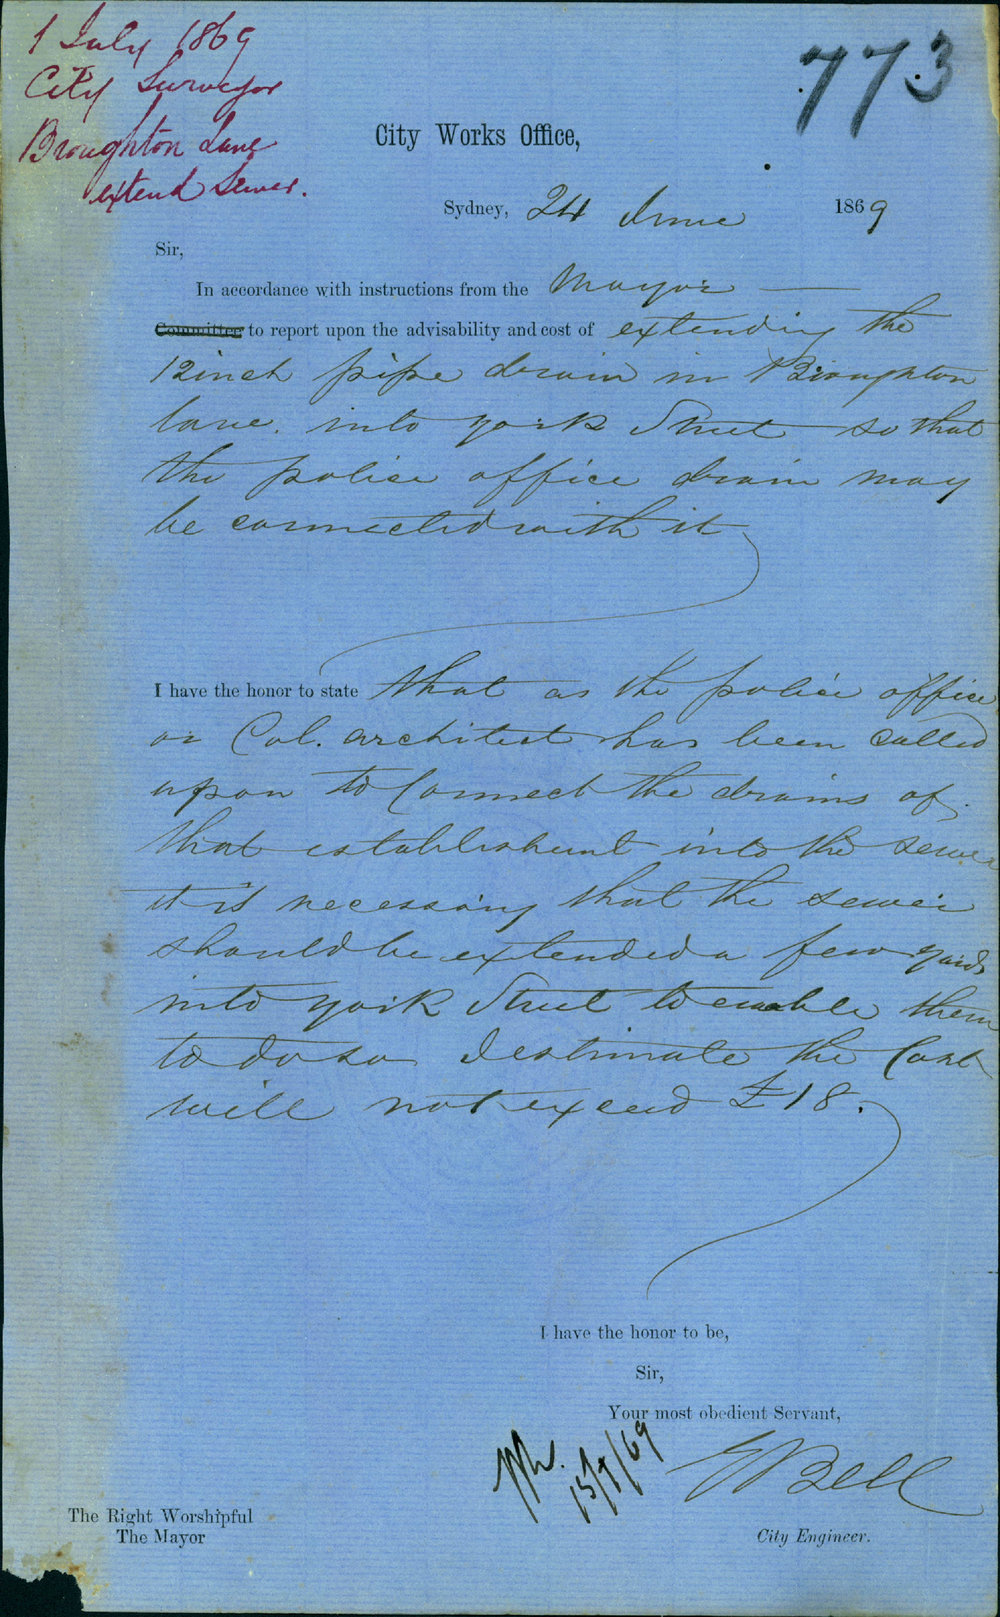 1 July 1869
City Surveyor
Broughton Lane
extend Sewer.
773
City Works Office,
Sydney, 24 June 1869
Sir,
In accordance with instructions from the Mayor
Committee to report upon the advisability and cost of extending the
12 inch pipe drain in Broughton
lane. into york Street so that
the police office drain may
be connected with it
I have the honor to state that as the police office
or Col. architect has been called
upon to Connect the drains of
that establishment into the sewer
it is necessary that the sewer
should be extended a few yards
into york Street to enable them
to do so I estimate the Cost
will not exceed £18.
I have the honor to be,
Sir,
Your most obedient Servant,
15/7/69
E Bell
City Engineer.
The Right Worshipful
The Mayor